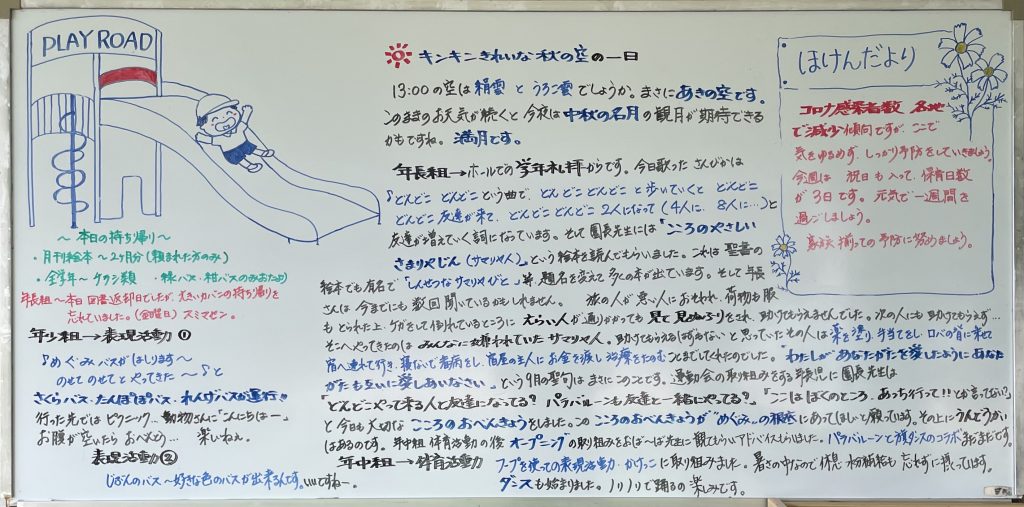 PLAY ROAD
～本日の持ち帰り～
・月刊絵本～2ヶ月分(頼まれた方のみ)
・全学年～クラス類 ・緑バス・紺バスのみおたより
年長組～本日図書返却日でしたが、大きいカバンの持ち帰りを
忘れていました。(金曜日)スミマセン。
年少組→表現活動①
『めぐみバスがはしります～
のせてのせてとやってきた～♪と
さくらバス・たんぽぽバス・れんげバスが運行!!
行った先ではピクニック…動物さんに「こんにちはー」
お腹が空いたらおべんとう… 楽しいねぇ。
表現活動②
じぶんのバス～好きな色のバスが出来るんです。いいですねー。
キンキンきれいな秋の空の一日
13:00の空は絹雲とうろこ雲でしょうか。まさにあきの空です。
このままのお天気が続くと今夜は中秋の名月の観月が期待できる
かもですね。満月です。
年長組→ホールでの学年礼拝からです。今日歌ったさんびかは
『どんどこどんどこという曲で、どんどこどんどこと歩いていくと どんどこ
どんどこ友達が来て、どんどこどんどこ2人になって(4人に、8人に…)と
友達が増えていく詞になっています。そして園長先生には『こころのやさしい
さまりやじん(サマリヤ人)』という絵本を読んでもらいました。これは聖書の
絵本でも有名で「しんせつなサマリヤびと」等、題名を変えて多くの本が出ています。そして年長
さんは今までにも数回聞いているかもしれません。 旅の人が悪い人におそわれ、荷物も服
もとられた上、ケガをして倒れているところにえらい人が通りがかっても見て見ぬふりをされ、助けてもらえませんでした。次の人にも助けてもらえず…
そこへやってきたのはみんなに嫌われていたサマリヤ人。助けてもらえるはずもないと思っていたその人は薬を塗り、手当をし、ロバの背に乗せて
宿へ連れて行き、寝ないで看病をし、宿屋の主人にお金を渡し治療をたのむことまでしてくれたのでした。「わたしがあなたがたを愛したようにあなた
がたも互いに愛しあいなさい」という9月の聖句はまさにこのことです。運動会の取り組みをする年長児に園長先生は
「どんどこやって来る人と友達になってる? パラバルーンも友達と一緒にやってる?」「ここはぼくのところ、あっち行って!!とか言ってない?」
と今日も大切なこころのおべんきょうをしました。このこころのおべんきょうが「めぐみ」の根底にあってほしいと願っています。その上にうんどうかい
はあるのです。年中組体育活動の後オープニングの取り組みをおばーば先生に観てもらいアドバイスもらいました。パラバルーンと旗ダンスのコラボまだまだです。
年中組→体育活動 フープを使っての表現活動・かけっこに取り組みました。暑さの中なので休息、水分補給も忘れずに摂っています。
ダンスも始まりました。ノリノリで踊るの楽しみです。
ほけんだより
コロナ感染者数 各地
で減少傾向ですが、ここで
気をゆるめず、しっかり予防をしていきましょう。
今週は 祝日も入って、保育日数
が3日です。元気で一週間を
過ごしましょう。
家族揃っての予防に努めましょう。